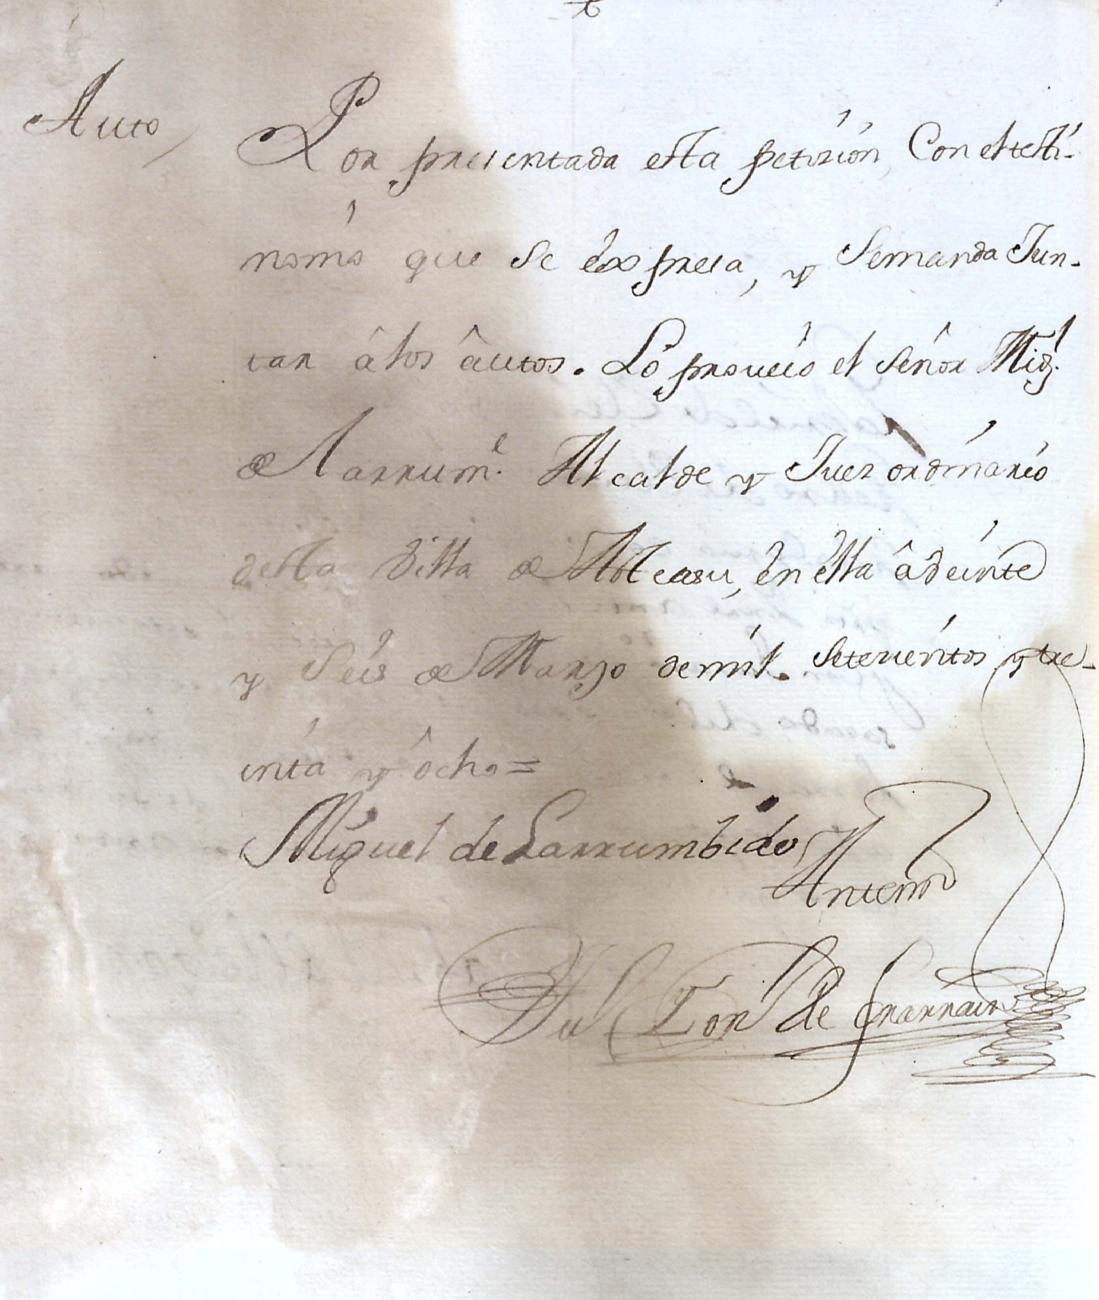 Auto
Por presentada esta peticion, Con el testi-
monio que se expresa, y Semanda Jun-
tar â los âutos. Lo proveio el señor Mig.l
de Larrum.e Alcalde y Juez ordinario
desta Villa de Alcasu, en ella â veinte
y seis de Marzo demil setecientos y tre-
inta y ôcho=
Miguel de Larrumbido
Antemi
de